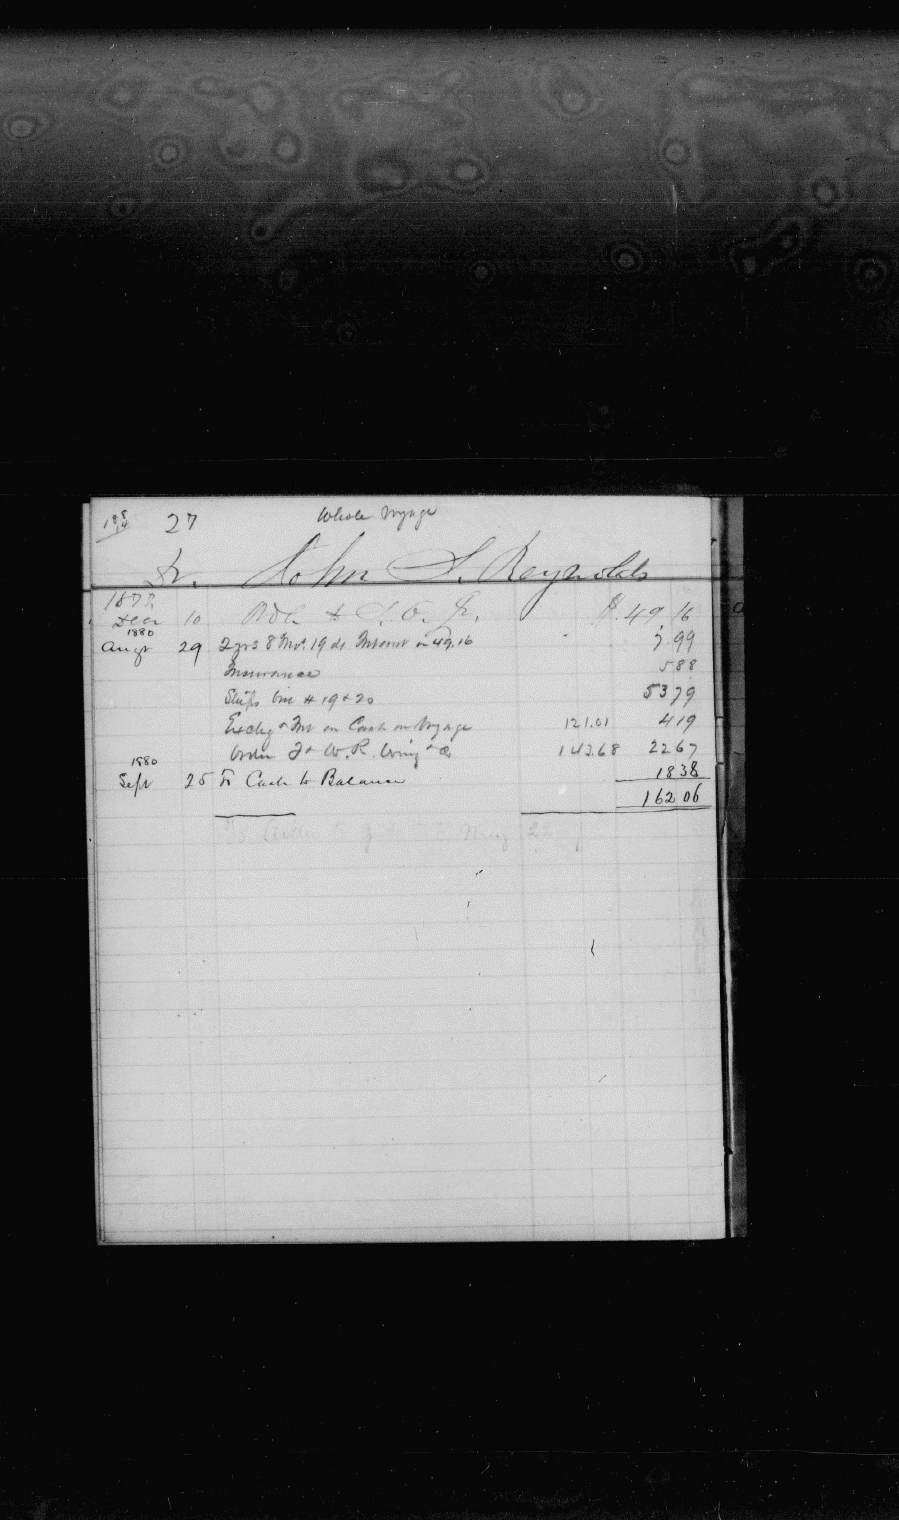 27 Whole Voyage
Dr. John S. Reynolds
1877
Decr 10 $ 49.16
1880
Augt 29 2 yrs 8 Mos. 19 ds Interest on 49.16 7.99
Insurance 5 88
Ships bill # 19 & 20 53 79
Exchg & Int on Cash on Voyage 121.01 4 19
Order J & W. R. Wing & Co 143.68 22 67
1880
Sept 25 To Cash to Balance 18 38
162 06